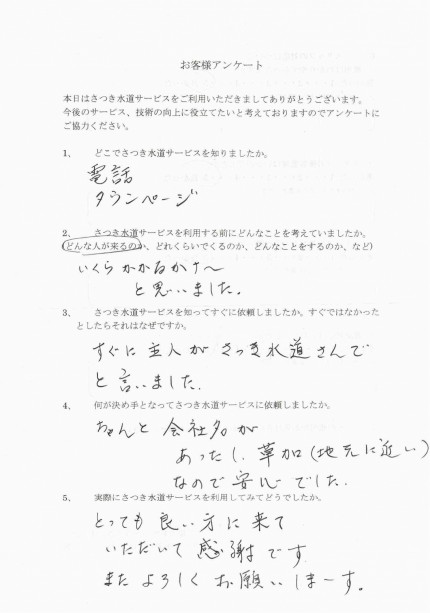 お客様アンケート
本日はさつき水道サービスをご利用いただきましてありがとうございます。
今後のサービス、技術の向上に役立てたいと考えておりますのでアンケートに
ご協力ください。
1、 どこでさつき水道サービスを知りましたか。
電話
タウンページ
2、 さつき水道サービスを利用する前にどんなことを考えていましたか。
(どんな人が来るのか、どれくらいでくるのか、どんなことをするのか、など)
いくらかかるかナ〜
と思いました。
3、 さつき水道サービスを知ってすぐに依頼しましたか。すぐではなかった
としたらそれはなぜですか。
すぐに主人がさつき水道さんで
と言いました.
4、 何が決め手となってさつき水道サービスに依頼しましたか。
ちゃんと会社名が
あったし、草加(地元に近い)
なので安心でした.
5、 実際にさつき水道サービスを利用してみてどうでしたか。
とっても良い方に来て
いただいて感謝です
またよろしくお願いしまーす。